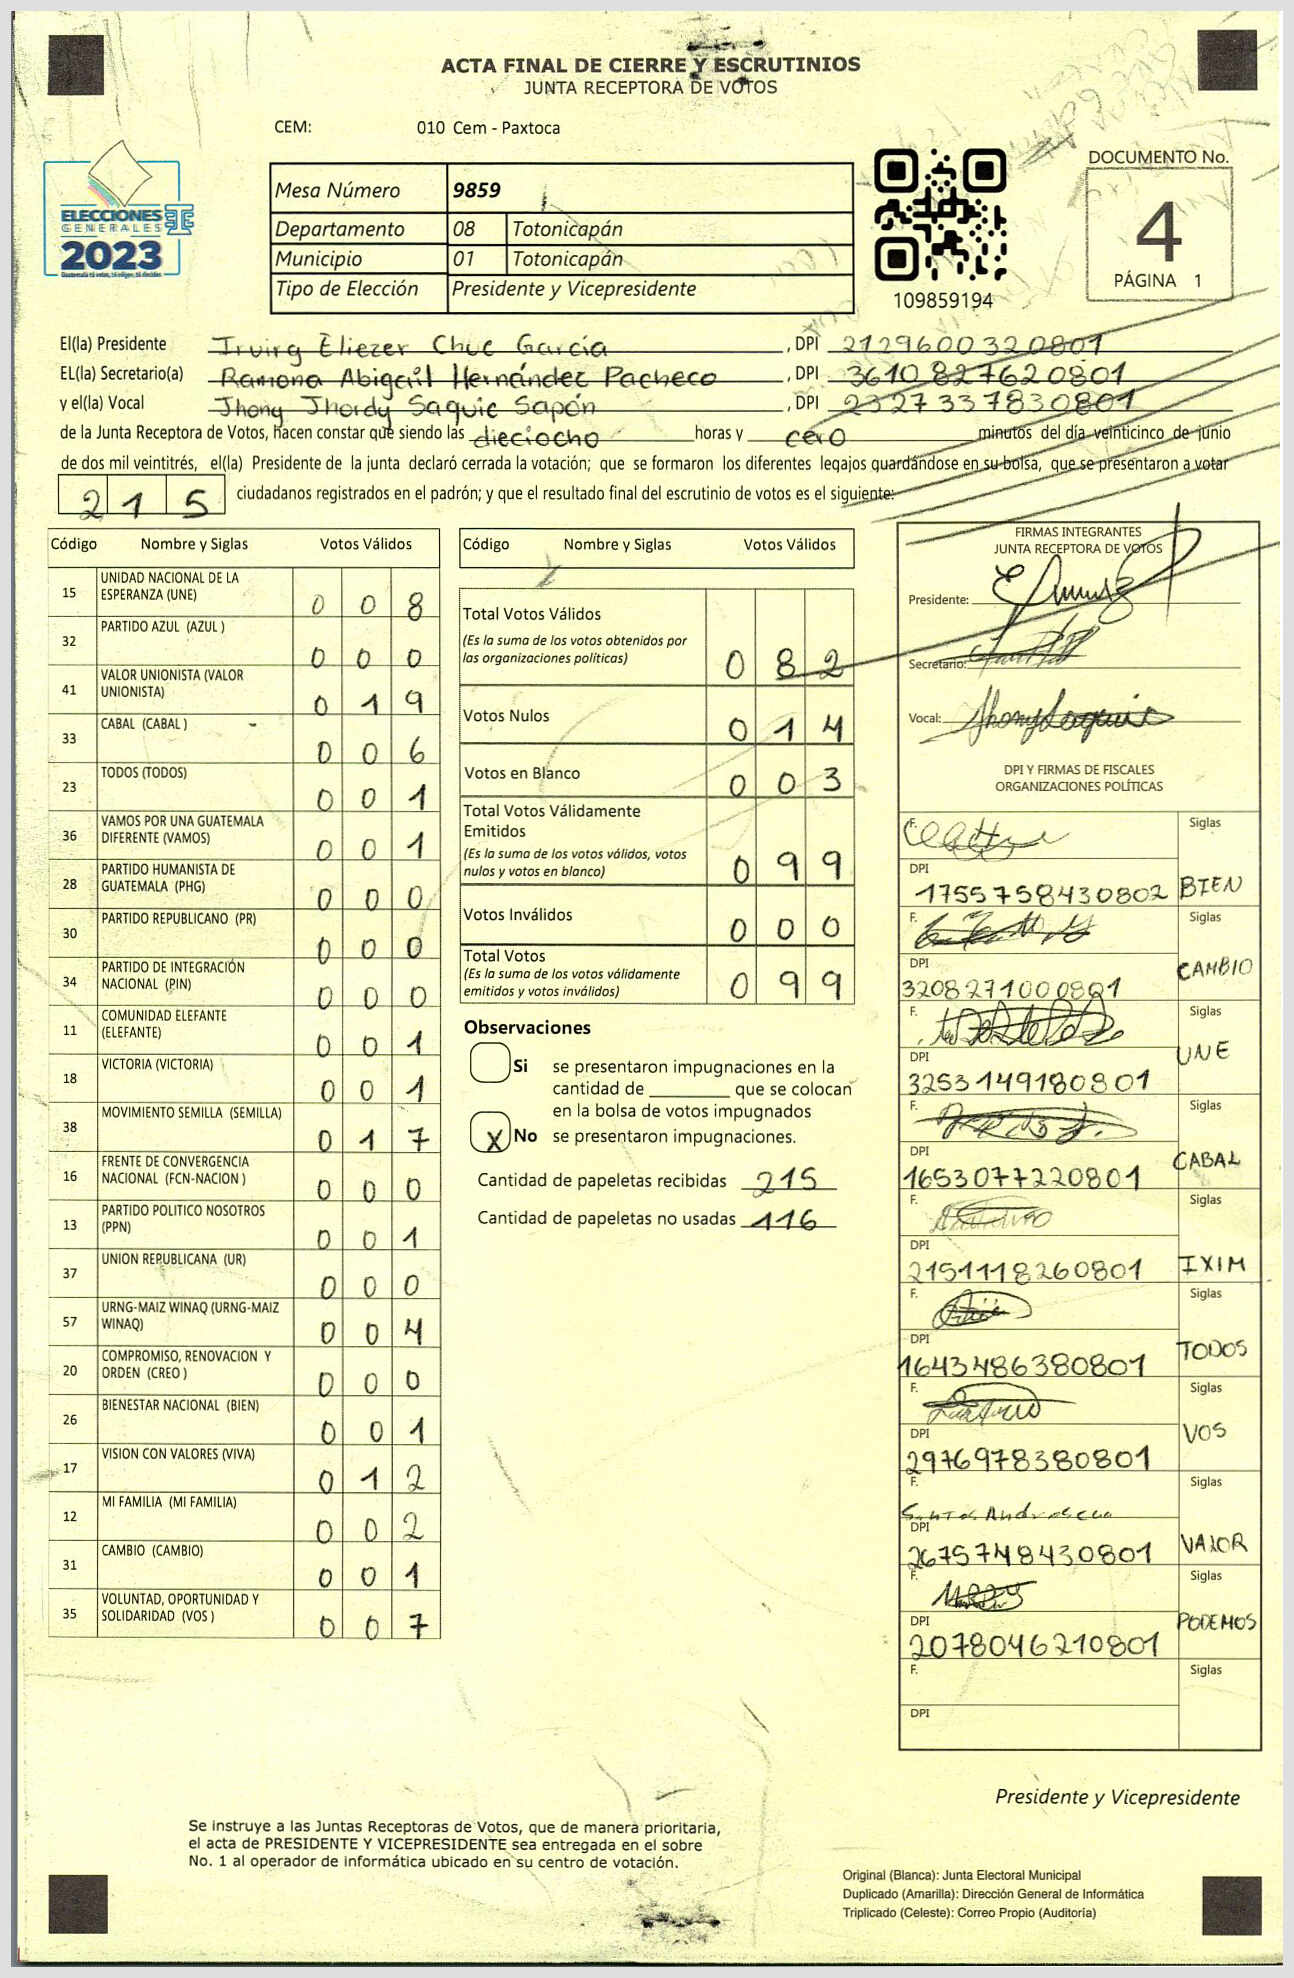 ACTA FINAL DE CIERRE Y ESCRUTINIOS
JUNTA RECEPTORA DE VOTOS
CEM: 010 Cem - Paxtoca
ELECCIONES
GENERALES
2023
Mesa Número 9859
Departamento 08 Totonicapán
Municipio 01 Totonicapán
Tipo de Elección Presidente y Vicepresidente
109859194
DOCUMENTO No.
4
PÁGINA 1
El(la) Presidente Irving Eliezer Chuc García, DPI 2129600320801
EL(la) Secretario(a) Ramona Abigail Hernández Pacheco, DPI 3610827620801
y el(la) Vocal Jhony Jhordy Saquic Sapón, DPI 2327337830801
de la Junta Receptora de Votos, hacen constar que siendo las dieciocho horas y cero minutos del día veinticinco de junio
de dos mil veintitrés, el(la) Presidente de la junta declaró cerrada la votación; que se formaron los diferentes legajos guardándose en su bolsa, que se presentaron a votar
215 ciudadanos registrados en el padrón; y que el resultado final del escrutinio de votos es el siguiente:
Código Nombre y Siglas Votos Válidos
15 UNIDAD NACIONAL DE LA
ESPERANZA (UNE) 0 0 8
32 PARTIDO AZUL (AZUL ) 0 0 0
41 VALOR UNIONISTA (VALOR
UNIONISTA) 0 1 9
33 CABAL (CABAL ) 0 0 6
23 TODOS (TODOS) 0 0 1
36 VAMOS POR UNA GUATEMALA
DIFERENTE (VAMOS) 0 0 1
28 PARTIDO HUMANISTA DE
GUATEMALA (PHG) 0 0 0
30 PARTIDO REPUBLICANO (PR) 0 0 0
34 PARTIDO DE INTEGRACIÓN
NACIONAL (PIN) 0 0 0
11 COMUNIDAD ELEFANTE
(ELEFANTE) 0 0 1
18 VICTORIA (VICTORIA) 0 0 1
38 MOVIMIENTO SEMILLA (SEMILLA) 0 1 7
16 FRENTE DE CONVERGENCIA
NACIONAL (FCN-NACION ) 0 0 0
13 PARTIDO POLITICO NOSOTROS
(PPN) 0 0 1
37 UNION REPUBLICANA (UR) 0 0 0
57 URNG-MAIZ WINAQ (URNG-MAIZ
WINAQ) 0 0 4
20 COMPROMISO, RENOVACION Y
ORDEN (CREO ) 0 0 0
26 BIENESTAR NACIONAL (BIEN) 0 0 1
17 VISION CON VALORES (VIVA) 0 1 2
12 MI FAMILIA (MI FAMILIA) 0 0 2
31 CAMBIO (CAMBIO) 0 0 1
35 VOLUNTAD, OPORTUNIDAD Y
SOLIDARIDAD (VOS ) 0 0 7
Código Nombre y Siglas Votos Válidos
Total Votos Válidos
(Es la suma de los votos obtenidos por
las organizaciones políticas) 0 8 2
Votos Nulos 0 1 4
Votos en Blanco 0 0 3
Total Votos Válidamente
Emitidos
(Es la suma de los votos válidos, votos
nulos y votos en blanco) 0 9 9
Votos Inválidos 0 0 0
Total Votos
(Es la suma de los votos válidamente
emitidos y votos inválidos) 0 9 9
Observaciones
Si se presentaron impugnaciones en la
cantidad de ________ que se colocan
en la bolsa de votos impugnados
X No se presentaron impugnaciones.
Cantidad de papeletas recibidas 215
Cantidad de papeletas no usadas 116
FIRMAS INTEGRANTES
JUNTA RECEPTORA DE VOTOS
Presidente:
Secretario:
Vocal:
DPI Y FIRMAS DE FISCALES
ORGANIZACIONES POLÍTICAS
F. Siglas
DPI 1755758430802 BIEN
F. Siglas
DPI 3208271000801 CAMBIO
F. Siglas
DPI 3253149180801 UNE
F. Siglas
DPI 1653077220801 CABAL
F. Siglas
DPI 2151118260801 IXIM
F. Siglas
DPI 1643486380801 TODOS
F. Siglas
DPI 2976978380801 VOS
F. Siglas
DPI 2675748430801 VALOR
F. Siglas
DPI 2078046210801 PODEMOS
F. Siglas
DPI
Presidente y Vicepresidente
Se instruye a las Juntas Receptoras de Votos, que de manera prioritaria,
el acta de PRESIDENTE Y VICEPRESIDENTE sea entregada en el sobre
No. 1 al operador de informática ubicado en su centro de votación.
Original (Blanca): Junta Electoral Municipal
Duplicado (Amarilla): Dirección General de Informática
Triplicado (Celeste): Correo Propio (Auditoría)